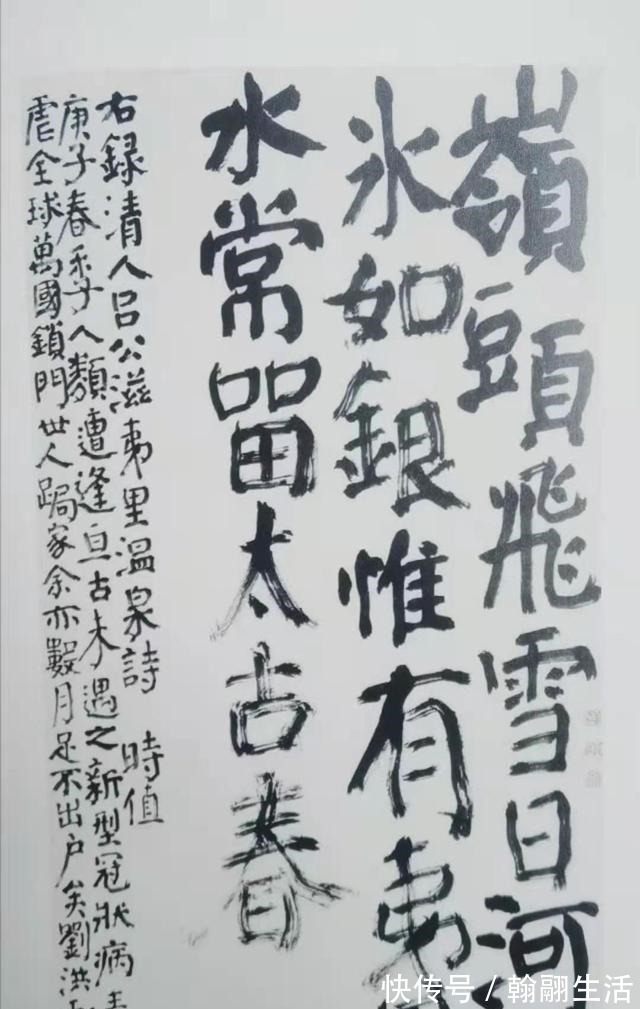 嶺頭飛雪日河
氷如銀惟有夷
水常留太古春
右録清人呂公滋夷里温泉詩 時值
庚子春季人類遭逢亘古未遇之新型冠狀病
虐全球萬國鎖門世人跼家余亦數月足不出户矣劉洪
快传号/翰翮生活